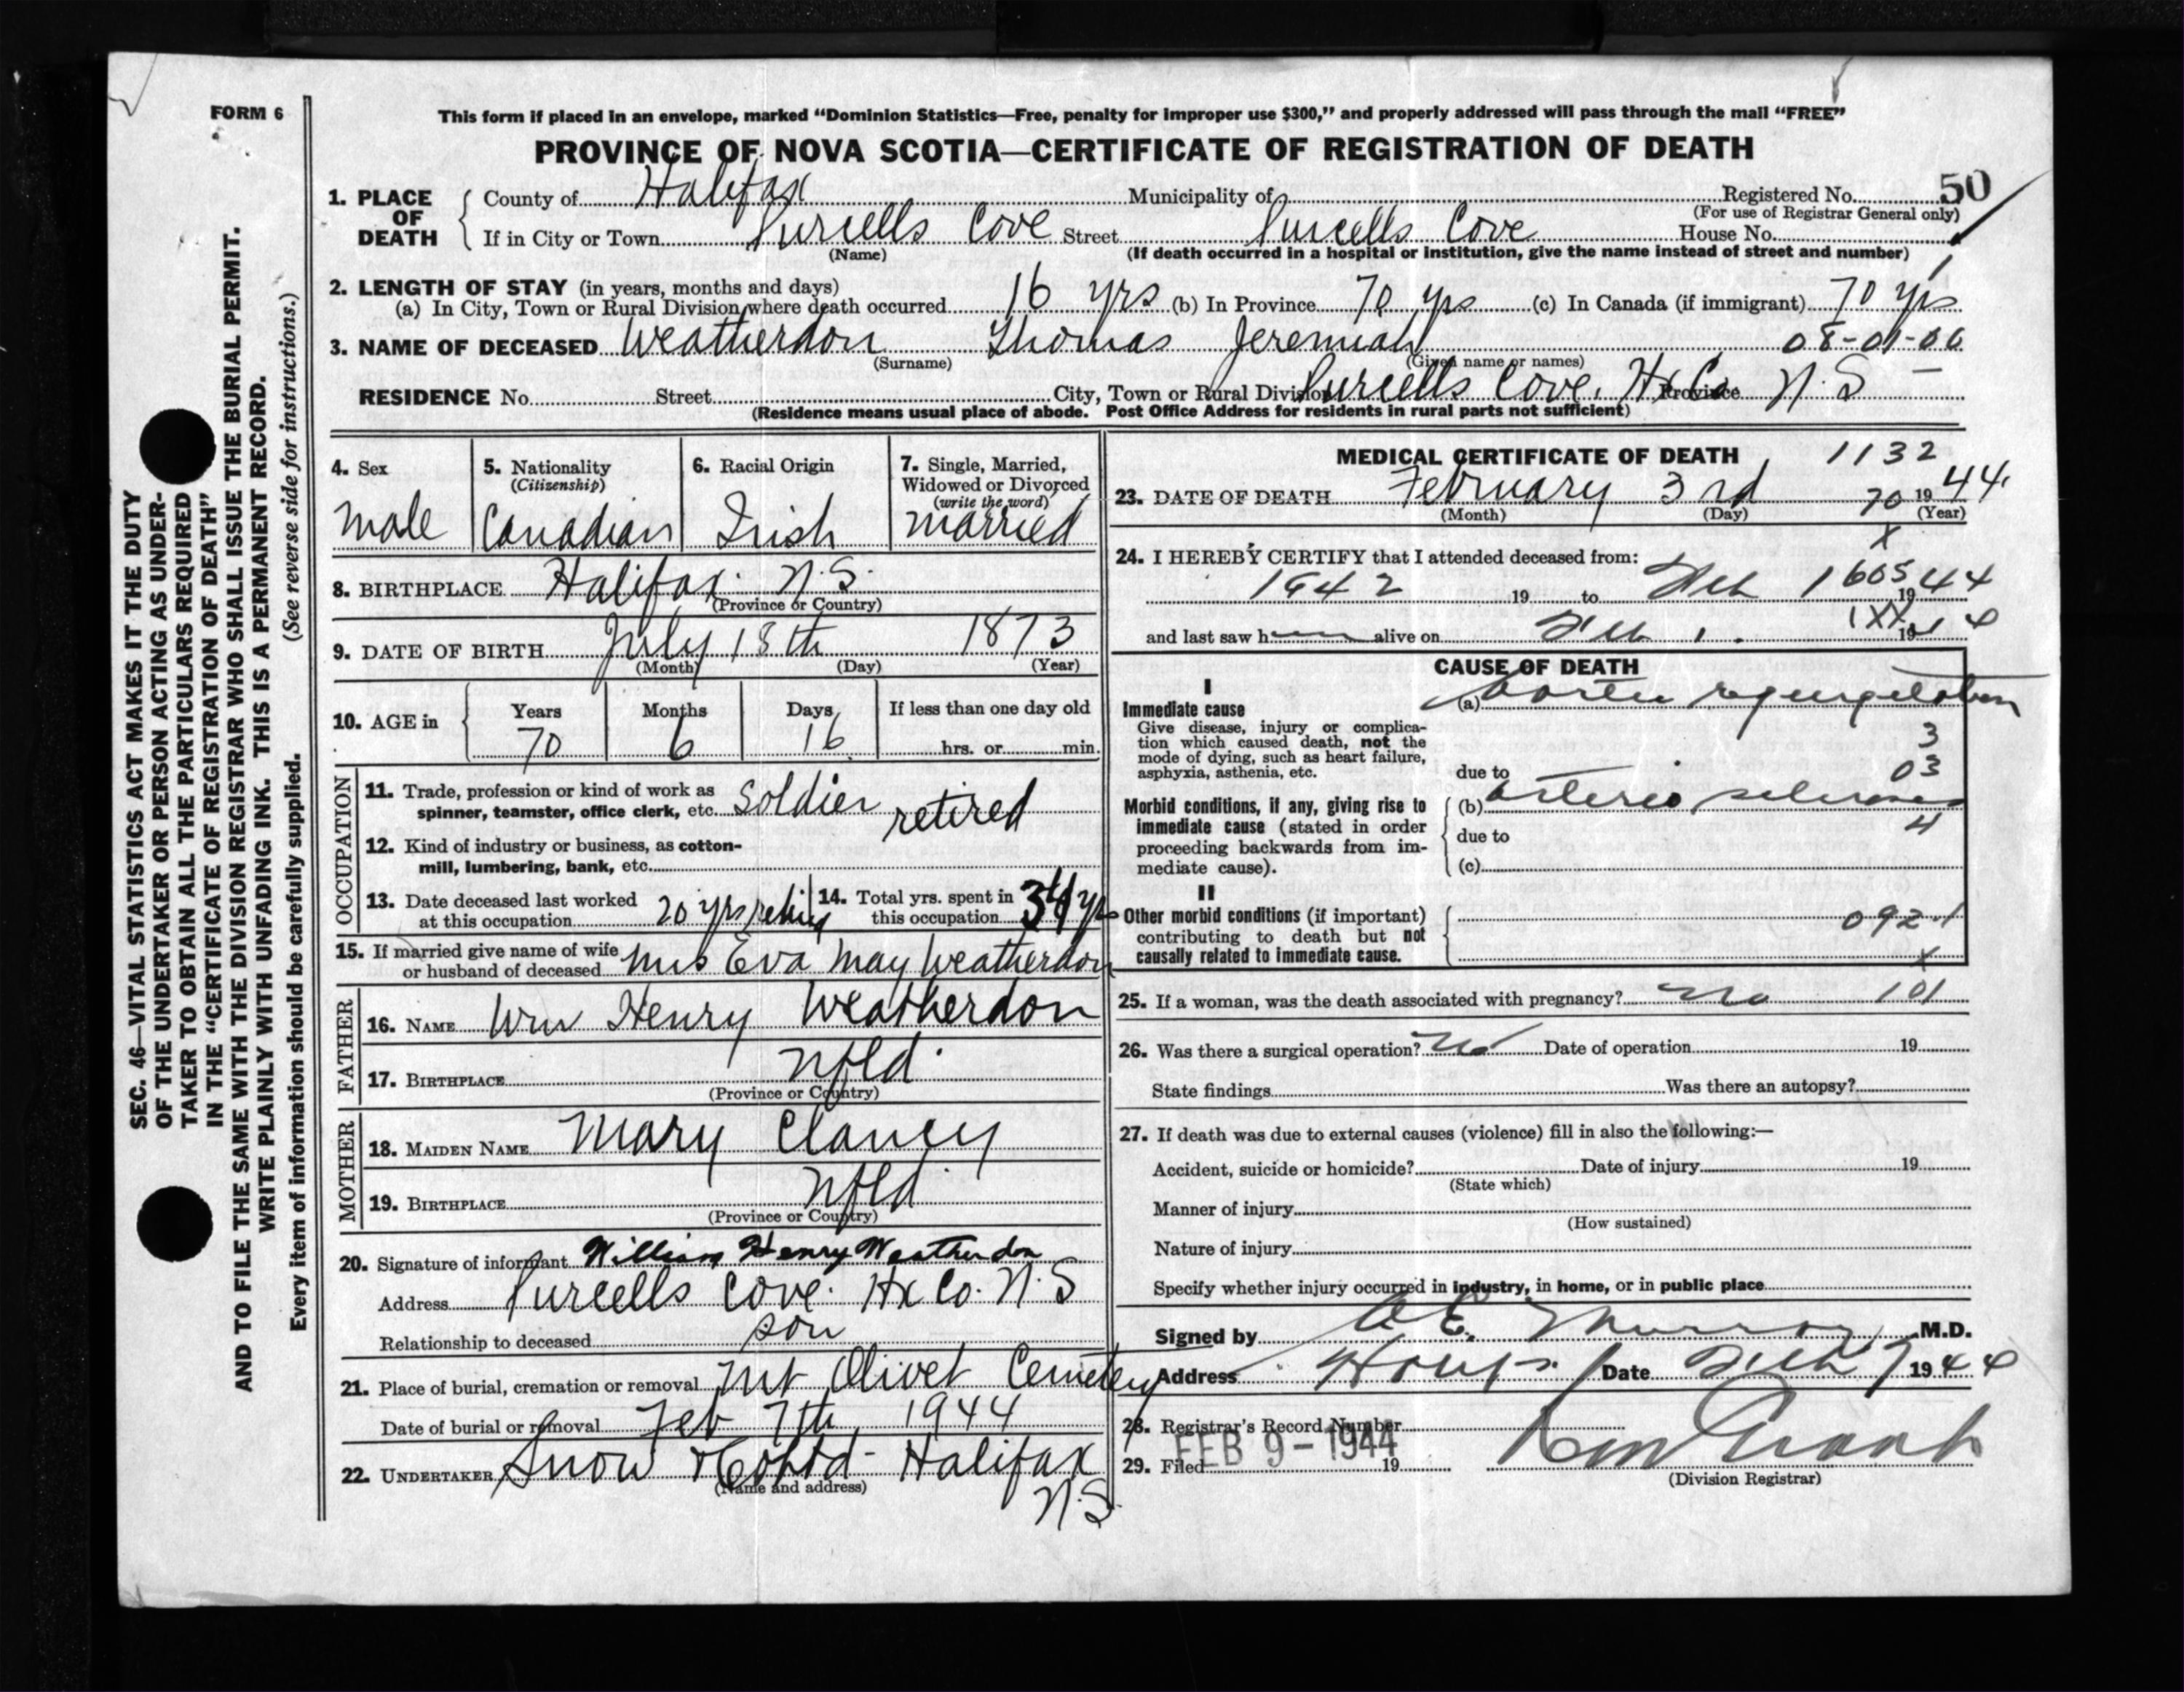 FORM 6
This form if placed in an envelope, marked “Dominion Statistics—Free, penalty for improper use $300,” and properly addressed will pass through the mail “FREE”
PROVINCE OF NOVA SCOTIA—CERTIFICATE OF REGISTRATION OF DEATH
1. PLACE OF DEATH { County of Halifax Municipality of Registered No. 50
(For use of Registrar General only)
If in City or Town Purcells Cove Street Purcells Cove House No.
(Name) (If death occurred in a hospital or institution, give the name instead of street and number)
2. LENGTH OF STAY (in years, months and days)
(a) In City, Town or Rural Division where death occurred 16 yrs (b) In Province 70 yrs (c) In Canada (if immigrant) 70 yrs
3. NAME OF DECEASED Weatherdon Thomas Jeremiah 08-01-00
(Surname) (Given name or names)
RESIDENCE No. Street City, Town or Rural Division Purcells Cove. Hx Co. Province N.S —
(Residence means usual place of abode. Post Office Address for residents in rural parts not sufficient)
4. Sex
male
5. Nationality
(Citizenship)
Canadian
6. Racial Origin
Irish
7. Single, Married,
Widowed or Divorced
(write the word)
married
8. BIRTHPLACE Halifax. N.S.
(Province or Country)
9. DATE OF BIRTH July 18th 1873
(Month) (Day) (Year)
10. AGE in { Years Months Days If less than one day old
70 6 16 hrs. or min.
OCCUPATION
11. Trade, profession or kind of work as
spinner, teamster, office clerk, etc. Soldier retired
12. Kind of industry or business, as cotton-
mill, lumbering, bank, etc.
13. Date deceased last worked
at this occupation 20 yrs retired
14. Total yrs. spent in
this occupation yrs
15. If married give name of wife
or husband of deceased Mrs Eva May Weatherdon
FATHER
16. NAME Wm Henry Weatherdon
17. BIRTHPLACE Nfld.
(Province or Country)
MOTHER
18. MAIDEN NAME Mary Clancy
19. BIRTHPLACE Nfld
(Province or Country)
20. Signature of informant William Henry Weatherdon
Address Purcells Cove. Hx Co. N.S
Relationship to deceased son
21. Place of burial, cremation or removal Mt Olivet Cemetery
Date of burial or removal Feb 7th 1944
22. UNDERTAKER Snow & Co Ltd - Halifax
(Name and address)
N.S.
MEDICAL CERTIFICATE OF DEATH 1132
23. DATE OF DEATH February 3rd 70 19 44.
(Month) (Day) (Year)
X
24. I HEREBY CERTIFY that I attended deceased from:
1942 19 to Feb 1 605 19 44
and last saw h alive on Feb 1. 1XX 19 44
CAUSE OF DEATH
I
Immediate cause
Give disease, injury or complica-
tion which caused death, not the
mode of dying, such as heart failure,
asphyxia, asthenia, etc.
(a) Aortic regurgitation
3
due to 03
Morbid conditions, if any, giving rise to
immediate cause (stated in order
proceeding backwards from im-
mediate cause).
(b) arterio sclerosis
due to 4
(c)
II
Other morbid conditions (if important)
contributing to death but not
causally related to immediate cause.
092-1
X
25. If a woman, was the death associated with pregnancy? no 101
26. Was there a surgical operation? no Date of operation 19
State findings Was there an autopsy?
27. If death was due to external causes (violence) fill in also the following:—
Accident, suicide or homicide? Date of injury 19
(State which)
Manner of injury
(How sustained)
Nature of injury
Specify whether injury occurred in industry, in home, or in public place
Signed by A E. Murray M.D.
Address Date Feb 7 1944
28. Registrar's Record Number
29. Filed FEB 9 - 1944 19
(Division Registrar)
SEC. 46—VITAL STATISTICS ACT MAKES IT THE DUTY
OF THE UNDERTAKER OR PERSON ACTING AS UNDER-
TAKER TO OBTAIN ALL THE PARTICULARS REQUIRED
IN THE “CERTIFICATE OF REGISTRATION OF DEATH”
AND TO FILE THE SAME WITH THE DIVISION REGISTRAR WHO SHALL ISSUE THE BURIAL PERMIT.
WRITE PLAINLY WITH UNFADING INK. THIS IS A PERMANENT RECORD.
Every item of information should be carefully supplied. (See reverse side for instructions.)